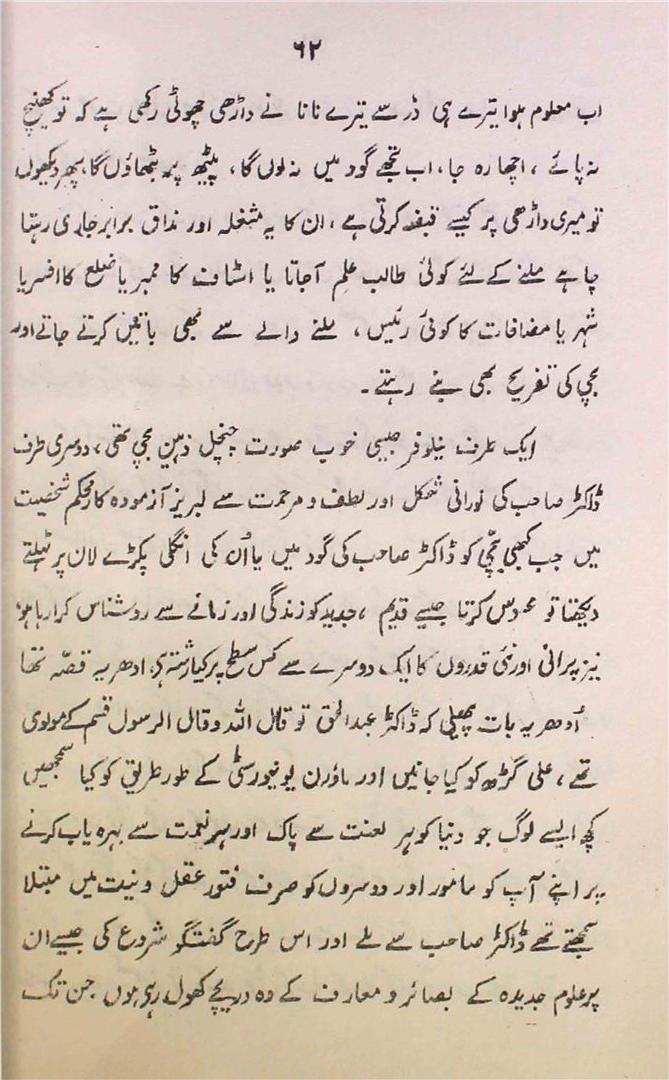 ۶۲
اب معلوم ہوا تیرے ہی ڈر سے تیرے نانا نے داڑھی چھوٹی رکھی ہے کہ تو کھینچ
نہ پائے ، اچھا رہ جا، اب تجھے گود میں نہ لوں گا ، پیٹھ پر بٹھاؤں گا، پھر دیکھوں
تو میری داڑھی پر کیسے قبضہ کرتی ہے ، ان کا یہ مشغلہ اور مذاق برابر جاری رہتا
چاہے ملنے کے لئے کوئی طالب علم آجاتا یا اسٹاف کا ممبر یا ضلع کا افسر یا
شہر یا مضافات کا کوئی رئیس ، ملنے والے سے بھی باتیں کرتے جاتے اور
بچی کی تفریح بھی بنے رہتے ۔
ایک طرف نیلوفر جیسی خوب صورت چنچل ذہین بچی تھی ، دوسری طرف
ڈاکٹر صاحب کی نورانی شکل اور لطف و مرحمت سے لبریز آزمودہ کار محکم شخصیت
میں جب کبھی بچّی کو ڈاکٹر صاحب کی گود میں یا اُن کی انگلی پکڑے لان پر ٹہلتے
دیکھتا تو محسوس کرتا جیسے قدیم ، جدید کو زندگی اور زمانے سے روشناس کرا رہا ہو
نیز پرانی اور نئی قدروں کا ایک دوسرے سے کس سطح پر کیا رشتہ ہے، ادھر یہ قصّہ تھا
اُدھر یہ بات پھیلی کہ ڈاکٹر عبدالحق تو قال اللہ وقال الرسول قسم کے مولوی
تھے ، علی گڑھ کو کیا جانیں اور ماڈرن یونیورسٹی کے طور طریق کو کیا سمجھیں
کچھ ایسے لوگ جو دنیا کو ہر لعنت سے پاک اور ہر نعمت سے بہرہ یاب کرنے
پر اپنے آپ کو مامور اور دوسروں کو صرف فتور عقل و نیت میں مبتلا
سمجھتے تھے ڈاکٹر صاحب سے ملے اور اس طرح گفتگو شروع کی جیسے ان
پر علوم جدیدہ کے بصائر و معارف کے وہ دریچے کھول رہی ہوں جن تک